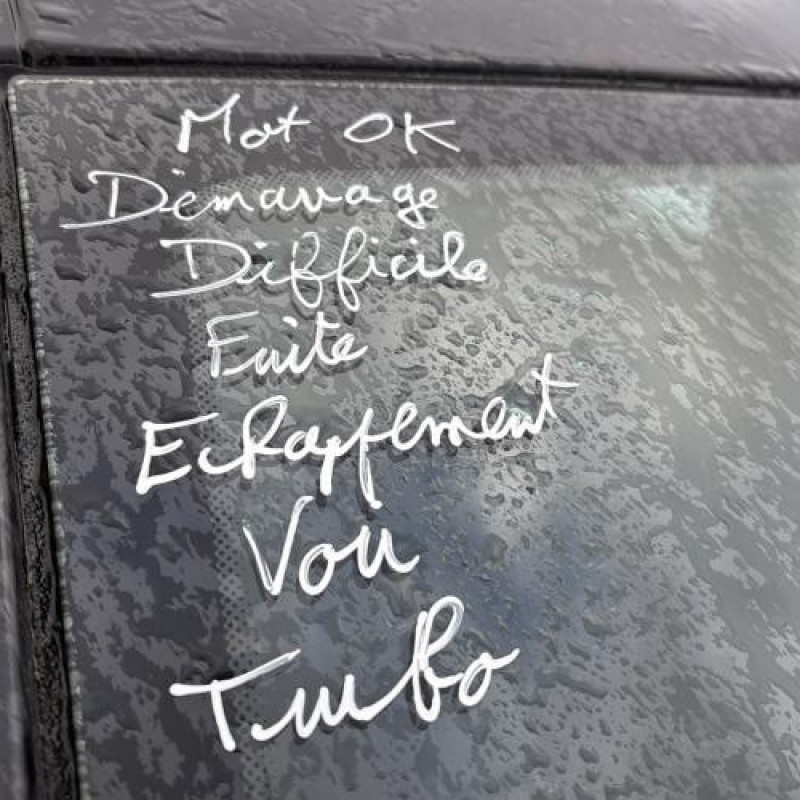 Mot OK
Démarrage
Difficile
Fuite
Echappement
Voir
Turbo